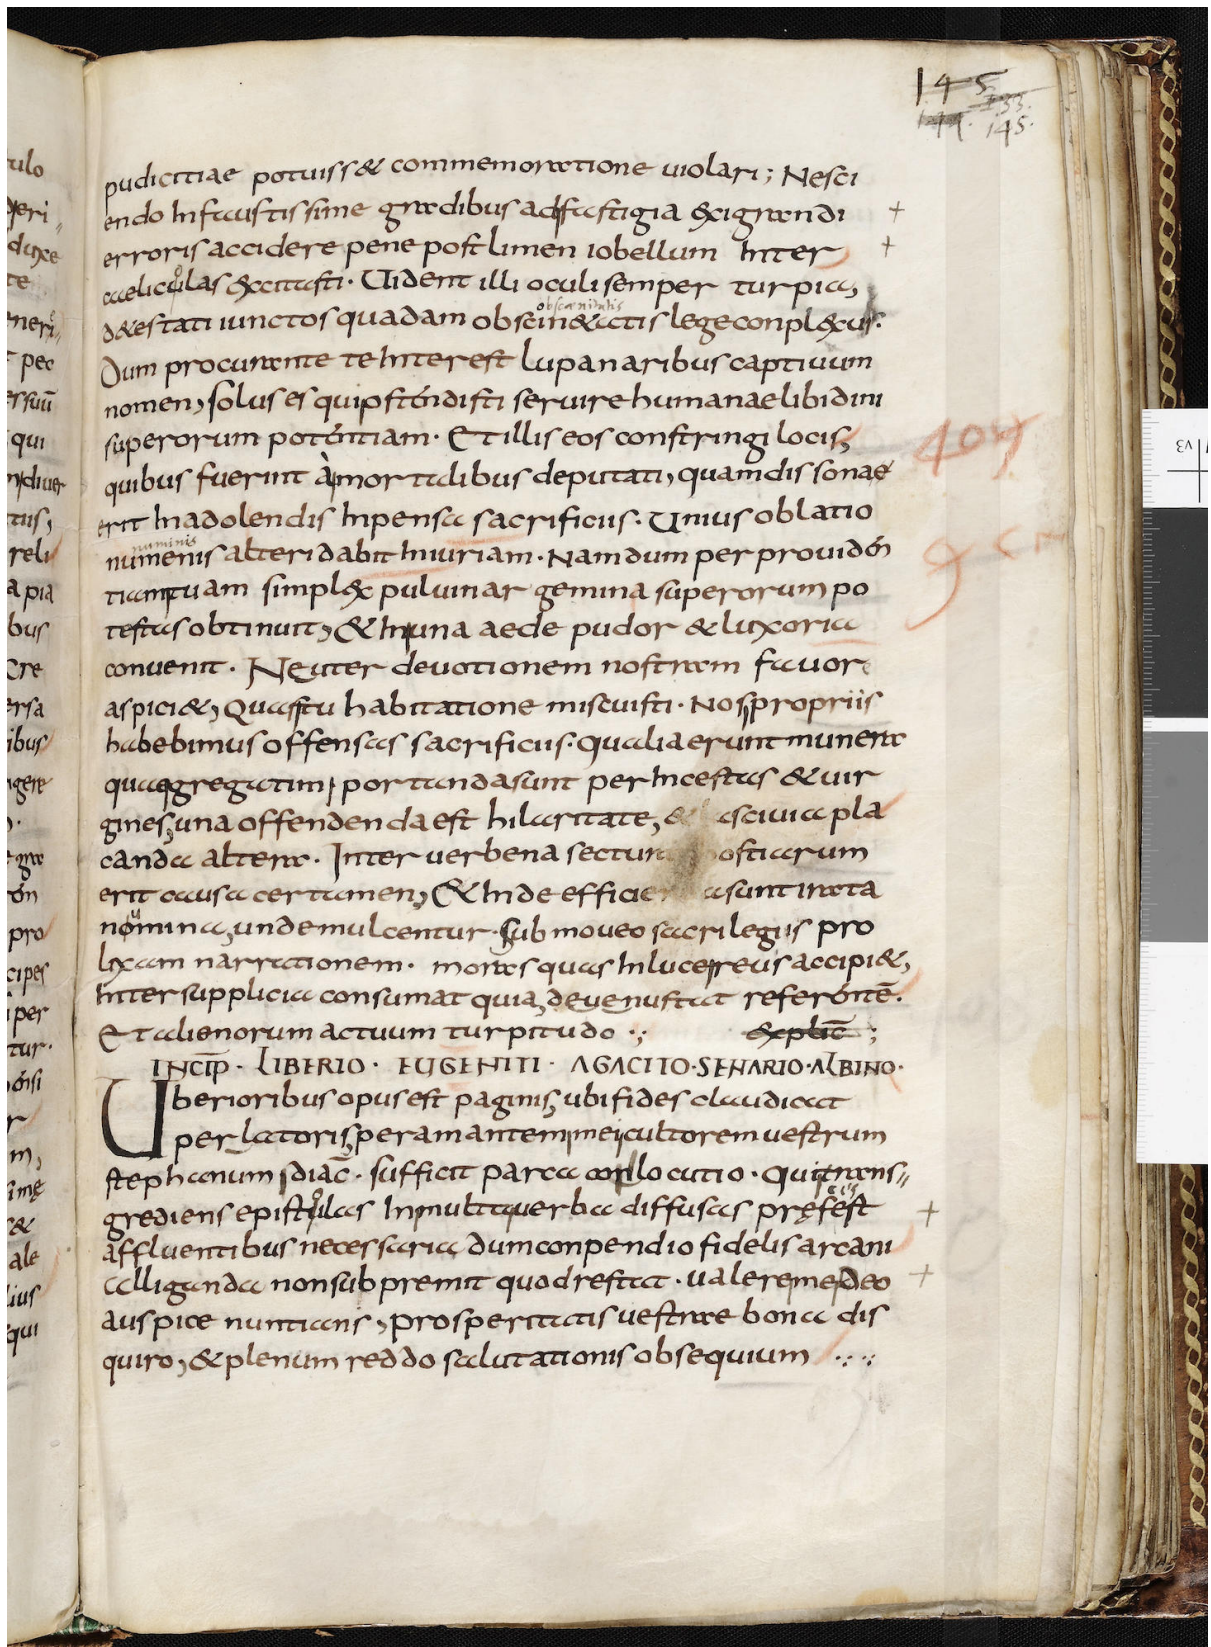 145.
133.
144. 145.
pudicitiae potuiss& commemoratione uiolari; Nesci
endo Infaustissime gradibus adfastigia exigrandi
erroris accidere pene post limen iobellum Inter
caelicolas excitasti. Uident illi oculi semper turpia,
d&estati iunctos quadam obscin&atis lege conplexus.
obscaenitatis
Dum procurante te Interest lupanaribus captiuum
nomen, solus es qui pstendisti seruire humanae libidini
superorum potentiam. Et illis eos constringi locis,
quibus fuerint à mortalibus deputati, quam dissonae
erit Inadolendis Inpensa sacrificiis. Unius oblatio
numinis
numenis alteri dabit Iniuriam. Nam dum per prouiden
tiam tuam simplex puluinar gemina superorum po
testas obtinuit, & In una aede pudor & luxoria
conuenit. Neuter deuotionem nostram fauore
aspici&, Quas tu habitatione miscuisti. Nos propriis
habebimus offensas sacrificiis. qualia erunt munera
quae gregatim portanda sunt per Incestas & uir
gines, una offendenda est hilaritate, & asciuia pla
canda altera. Inter uerbena sectum ostiarum
erit causa certamen, & Inde efficie a sunt irata
numina, unde mulcentur. Submoueo sacrilegiis pro
lixam narrationem. mores quas In luce reus accipi&,
Inter supplicia consumat quia, deuenustat referente.
Et alienorum actuum turpitudo .; explic ;
INCIP. LIBERIO. EUGENITI. AGACITO. SENARIO. ALBINO.
Uberioribus opus est paginis, ubi fides claudicat
perlatoris, per amantem mei cultorem uestrum
stephanum diac. sufficit parca conlocutio. Qui trans
grediens epistulas In multa uerba diffusas prefest
cis
affluentibus necessaria dum conpendio fidelis arcani
alliganda non subpremit quod restat. ualere me deo
auspice nuntians, prosperitatis uestrae bona dis
quiro, & plenum reddo salutationis obsequium